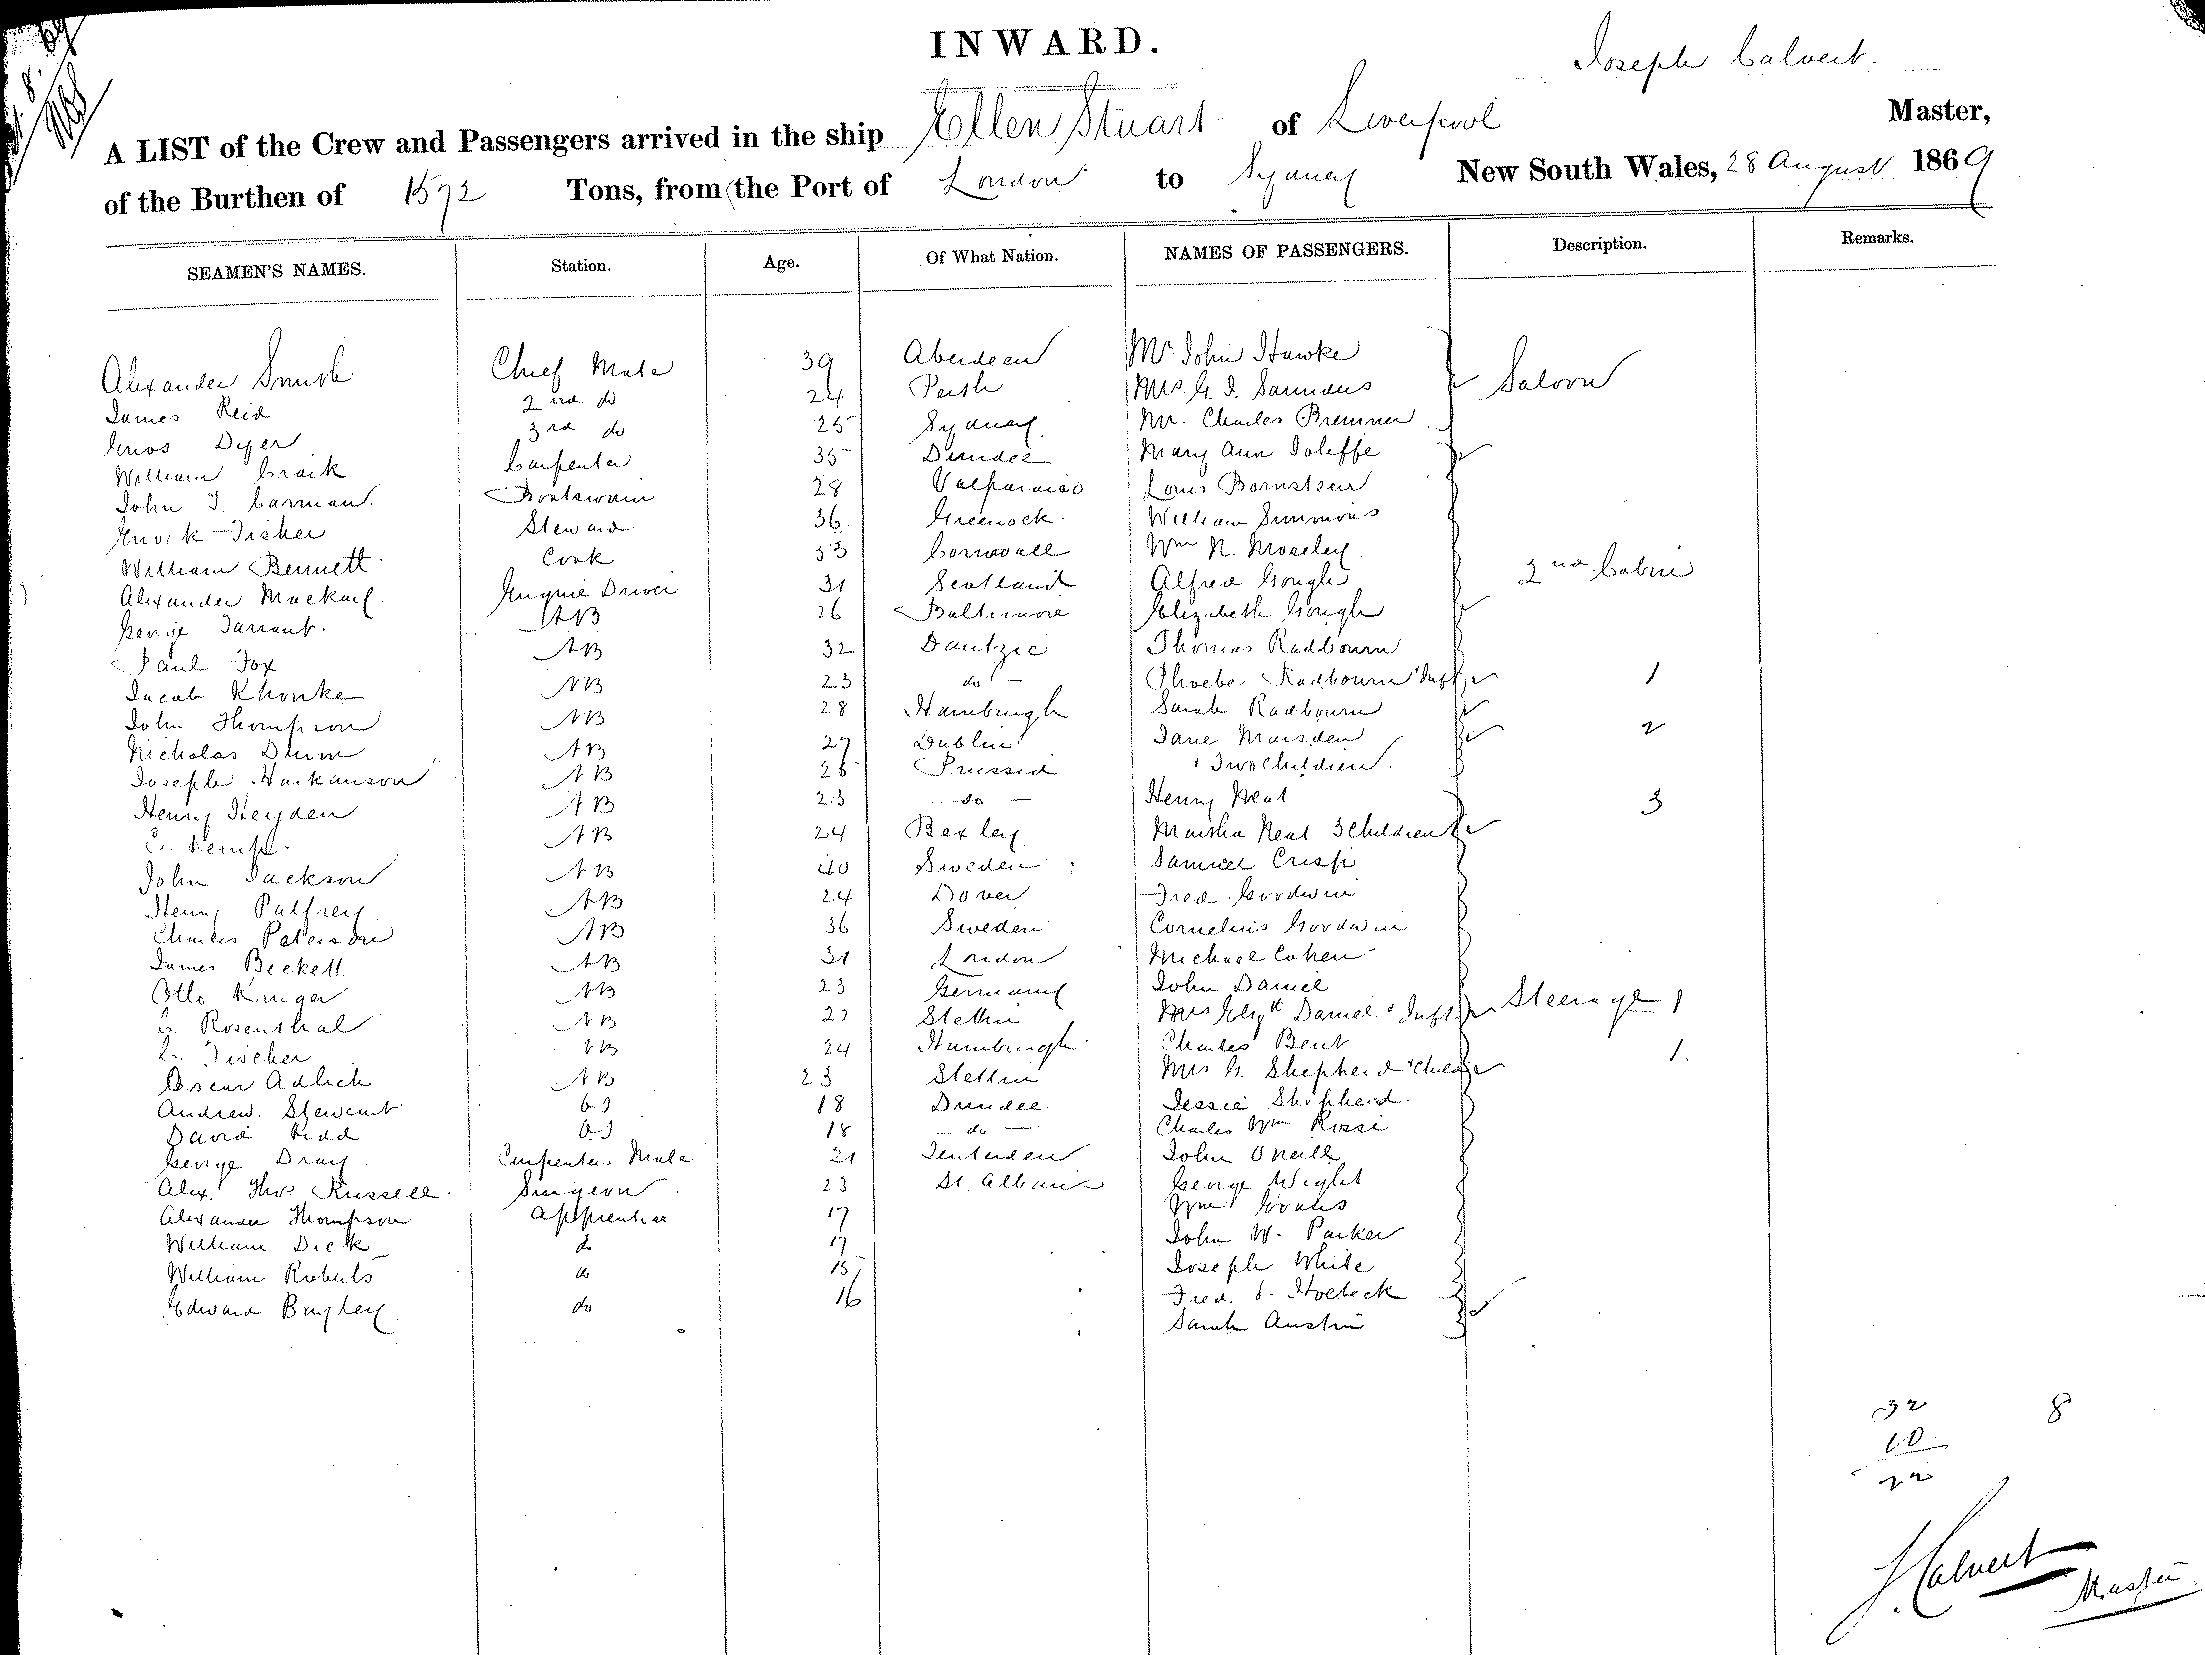 INWARD.
Joseph Calvert.
A LIST of the Crew and Passengers arrived in the ship Ellen Stuart of Liverpool Master,
of the Burthen of 1592 Tons, from the Port of London to Sydney New South Wales, 28 August 1869
SEAMEN'S NAMES. Station. Age. Of What Nation. NAMES OF PASSENGERS. Description. Remarks.
Alexander Smith Chief Mate 39 Aberdeen Mr John Hawke
James Reid 2nd do 24 Perth Mrs G. I. Saunders Saloon
Enos Dyer 3rd do 25 Sydney Mr. Charles Bremner
William Craik Carpenter 35 Dundee Mary Ann Joliffe
John J. Carman. Boatswain 28 Valparaiso Louis Bornstein
Enock Fisher Steward 36 Greenock William Simmons
William Bennett Cook 33 Cornwall Wm N. Moseley
Alexander Mackay Engine Driver 31 Scotland Alfred Gough 2nd Cabin
George Tarrant. AB 26 Baltimore Elizabeth Gough
Paul Fox AB 32 Dantzic Thomas Radbourn
Jacob Khonke AB 23 do Phoebe Radbourn & Inft 1
John Thompson AB 28 Hamburgh Sarah Radbourn
Nicholas Dunn AB 27 Dublin Jane Marsden 2
Joseph Harkanson AB 26 Prussia & Two Children.
Henry Heyden AB 23 do Henry Neal 3
Kemp. AB 24 Bexley Martha Neal 3 Children
John Jackson AB 40 Sweden Samuel Crisp
Henry Palfrey AB 24 Dover Fred Goodwin
Charles Paterson AB 36 Sweden Cornelius Goodwin
James Beckett AB 31 London Michael Cohen
Otto Kruger AB 23 Germany John Daniel
G. Rosenthal AB 27 Stettin Mrs Elizth Daniel & Inft Steerage 1
Fischer AB 24 Hamburgh Charles Bent
Oscar Adlich AB 23 Stettin Mrs G. Shepherd & Child 1.
Andrew Stewart OS 18 Dundee Jessie Shepherd.
David Kidd OS 18 do Charles Wm Rossi
George Dray Carpenters Mate 21 Tenterden John Oneill
Alex. Thos Russell Surgeon 23 St. Albans George Wight
Alexander Thompson Apprentice 17 Wm Evans
William Dick do 17 John W. Parker
William Roberts do 15 Joseph White
Edward Bayley do 16 Fred. Hoebeck
Sarah Austin
32 8
10
22
J Calvert
Master